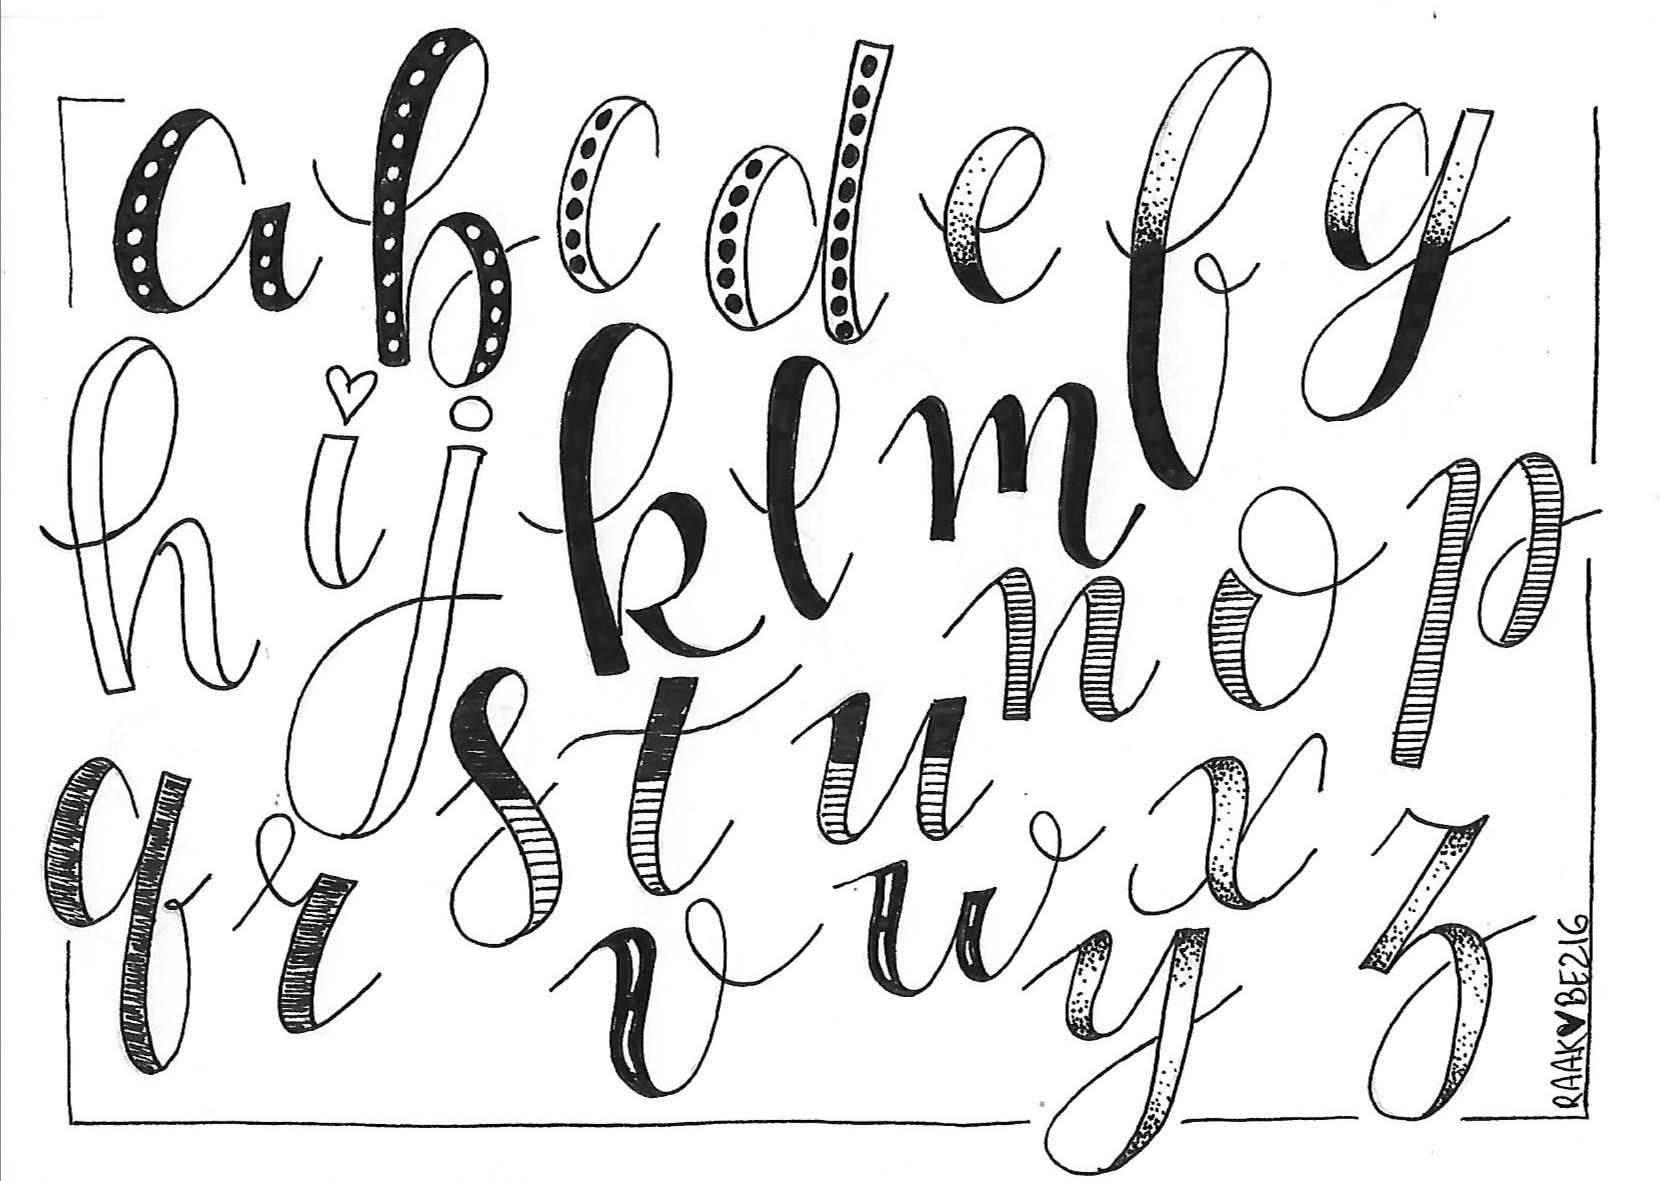 abcdefg
hijklm
nop
qrstu
vwxyz
RAAK♥BEZIG